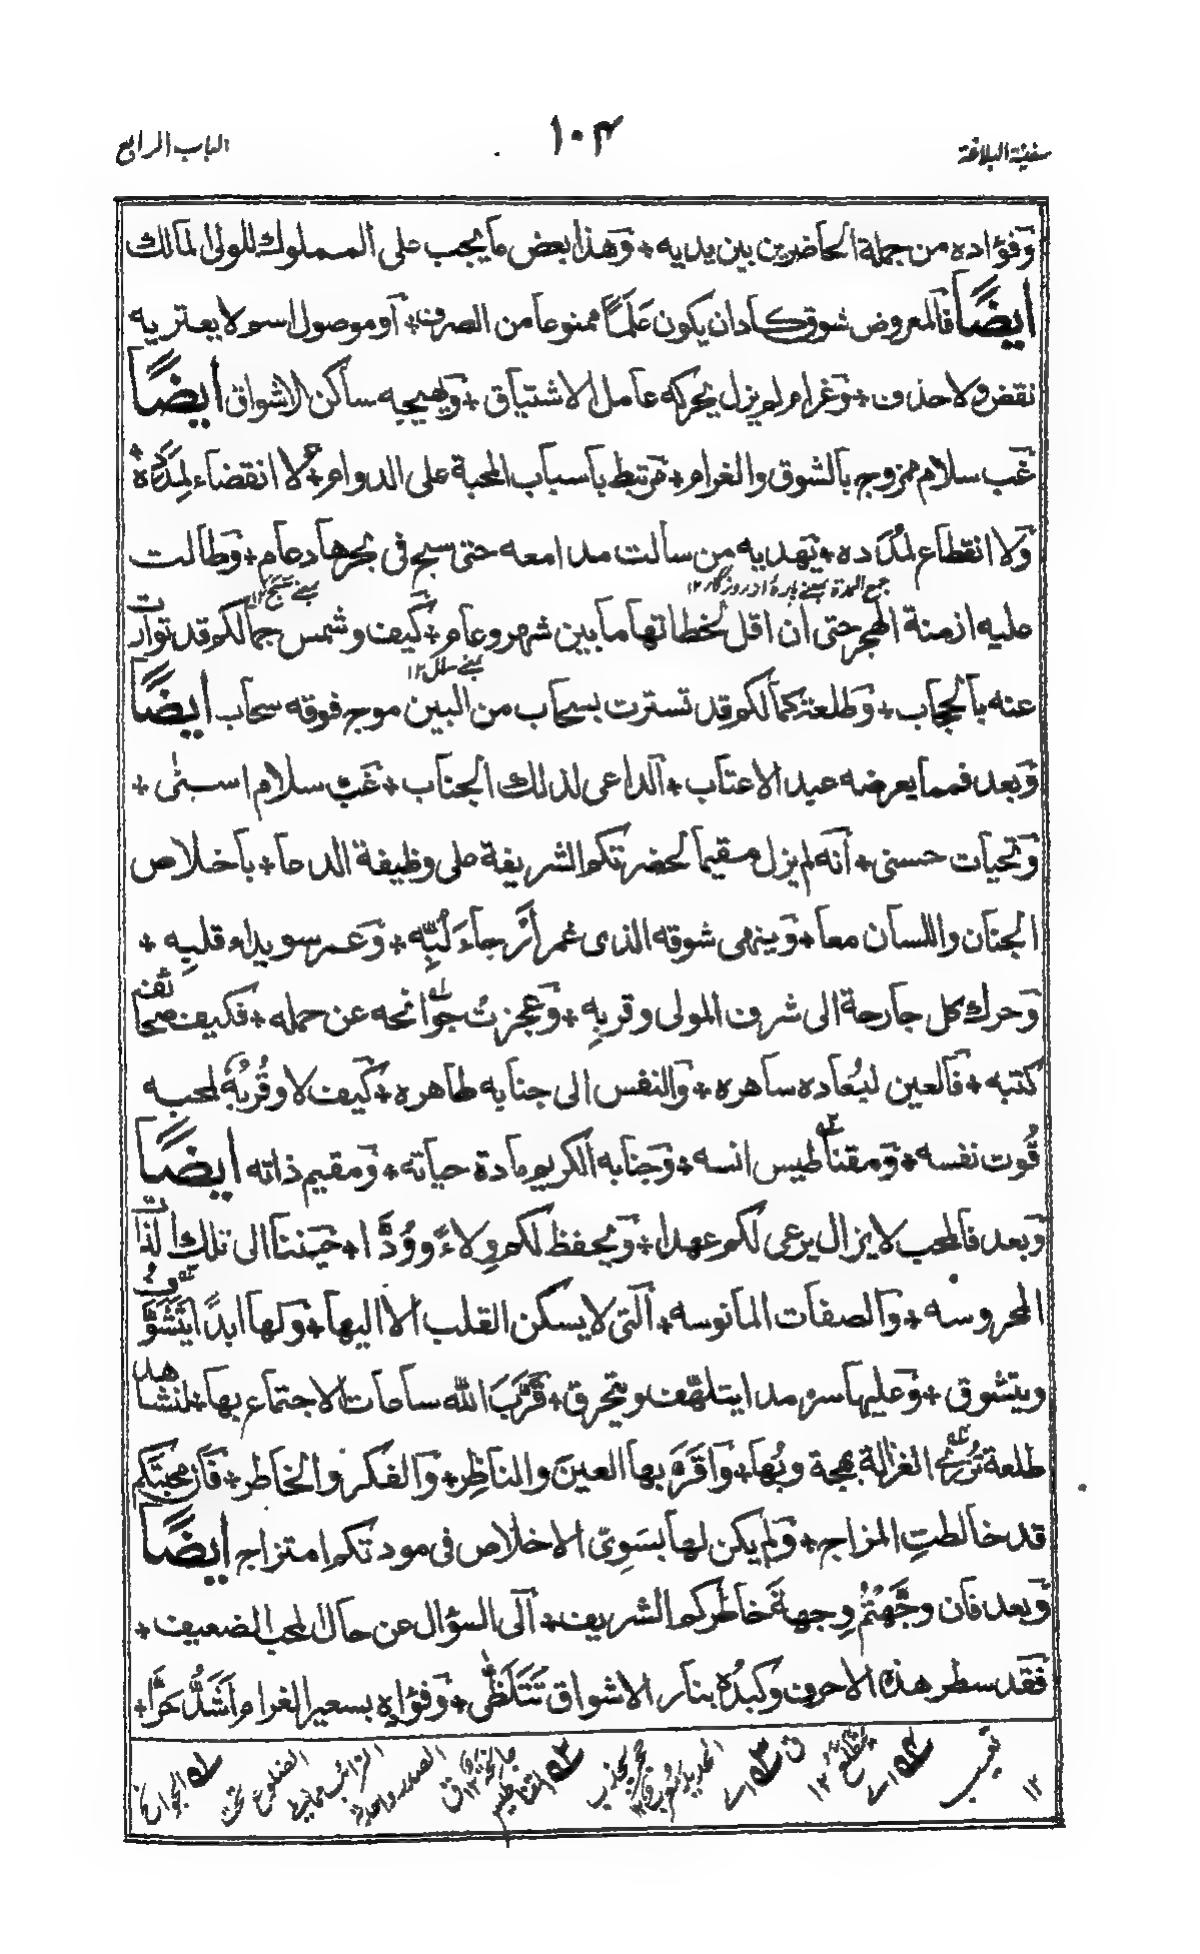 سفينة البلاغة
١٠٤
الباب الرابع
وفؤاده من جملة الحاضرين بين يديه + وهذا بعض ما يجب على المملوك للولى المالك
أيضًا فالمعروض شوق كاد ان يكون عَلَمًا ممنوعا من الصرف + أو موصول اسم لا يعتريه
نقض ولا حذف + وغرام لم يزل يحركه عامل الاشتياق + ويهيجه ساكن الاشواق أيضًا
غب سلام ممزوج بالشوق والغرام + مرتبط بأسباب المحبة على الدوام + لا انقضاء لمَدَده +
ولا انقطاع لمُدَده + يهديه من سالت مدامعه حتى سبح فى بحرها دعام + وطالت
جمع المدة يعنے پارۀ از روزگار ١٢
عليه ازمنة الهجر حتى أن اقل لحظاتها ما بين شهر وعام + كيف وشمس جمالكم قد توارت
عنه بالحجاب + وطلعة كمالكم قد تسترت بسحاب من البين موج فوقه سحاب أيضًا
وبعد فمما يعرضه عبد الاعتاب + الداعى لذلك الجناب + غب سلام اسنى +
وتحيات حسنى + أنه لم يزل مقيما لحضرتكم الشريفة على وظيفة الدعا + باخلاص
الجنان واللسان معا + وينهى شوقه الذى غمر أرجاءَ لُبِّه + وعمر سويداء قلبه +
وحرك كل جارحة الى شرف المولى وقربه + وعجزتْ جوانحه عن حمله + فكيف صحائف
كتبه + فالعين لبُعاده ساهره + والنفس الى جنابه طاهره + كيف لا وقُربُهُ لمحبه
قُوت نفسه + ومقناطيس انسه + وجنابه الكريم مادة حياته + ومقيم ذاته أيضًا
وبعد فالمحب لا يزال يرعى لكم عهدا + ويحفظ لكم وِلاءً ووُدًّا + حنيننا الى تلك الذات
المحروسه + والصفات المانوسه + ألتى لا يسكن القلب الا اليها + ولها ابدًا يتشوّف
ويتشوق + وعليها سرمدا يتلهّف ويتحرق + قرّبَ الله ساعات الاجتماع بها + لنشاهد
طلعة تُزرى الغزالة بهجة وبُها + واقرّ بها العينَ والناظر + والفكر والخاطر + فان محبتكم
قد خالطتِ المزاج + ولم يكن لها بسَوِىّ الاخلاص فى مودتكم امتزاج أيضًا
وبعد فان وجَّهتُم وجهةَ خاطركم الشريف + ألى السؤال عن حال المحب الضعيف +
فقد سطر هذه الاحرف وكبدُه بنار الاشواق تَتَلَظّى + وفؤاده بسعير الغرام أشَدُّ حَرًّا +